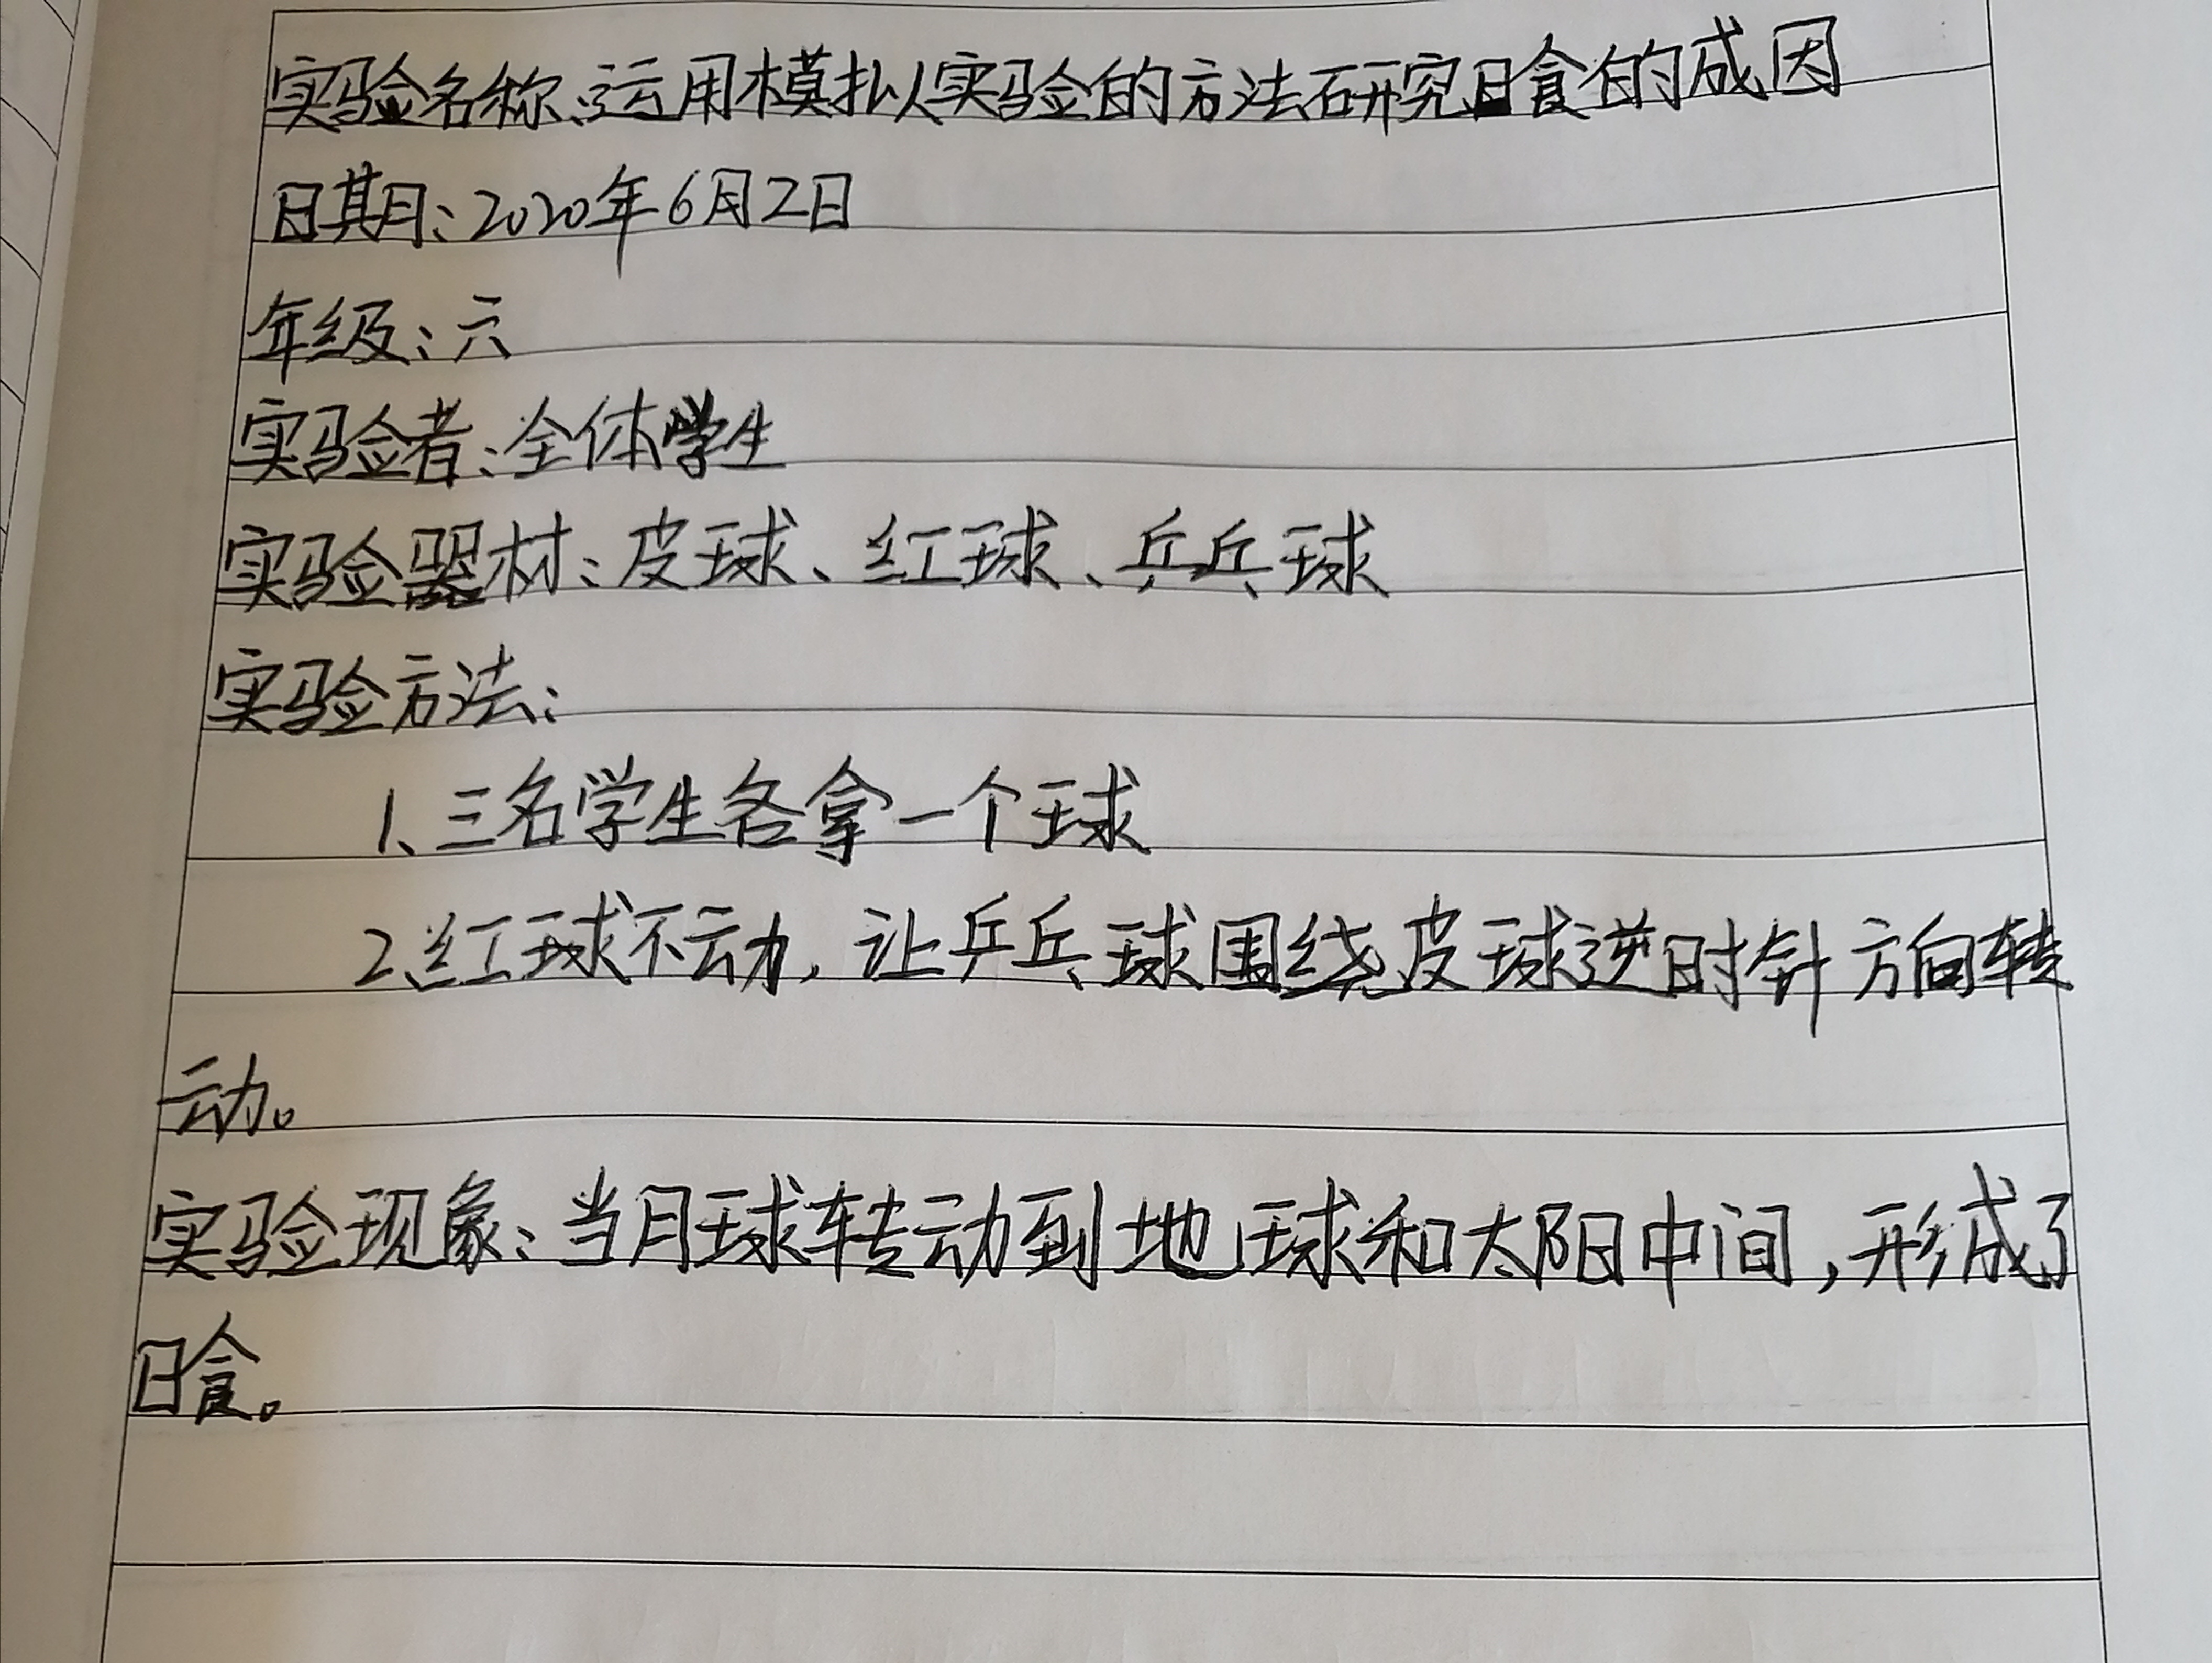 实验名称：运用模拟实验的方法研究日食的成因
日期：2020年6月2日
年级：六
实验者：全体学生
实验器材：皮球、红球、乒乓球
实验方法：
1、三名学生各拿一个球
2、红球不动，让乒乓球围绕皮球逆时针方向转
动。
实验现象：当月球转动到地球和太阳中间，形成了
日食。